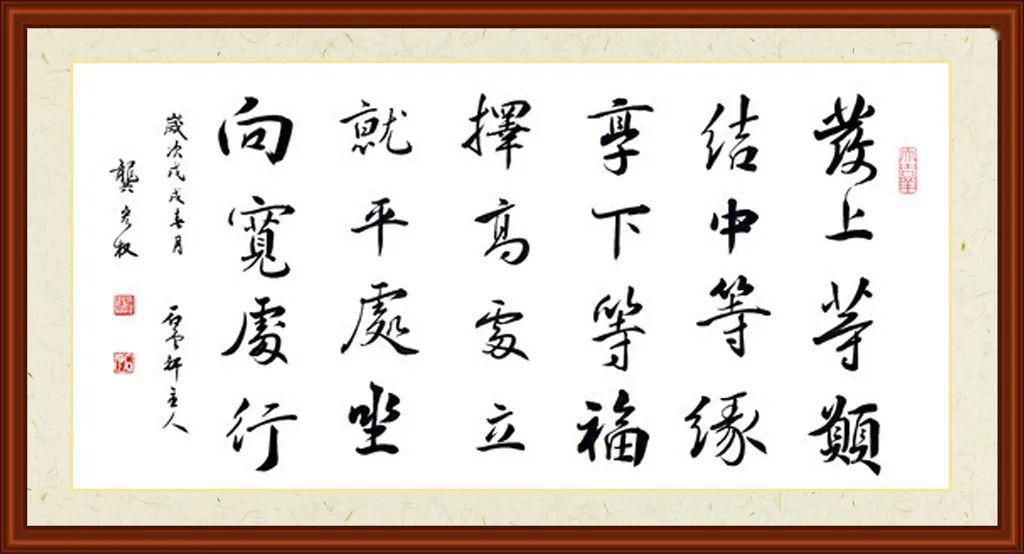 發上等願
結中等緣
享下等福
擇高處立
就平處坐
向寬處行
歲次戊戌春月 石雲軒主人
龔彦权